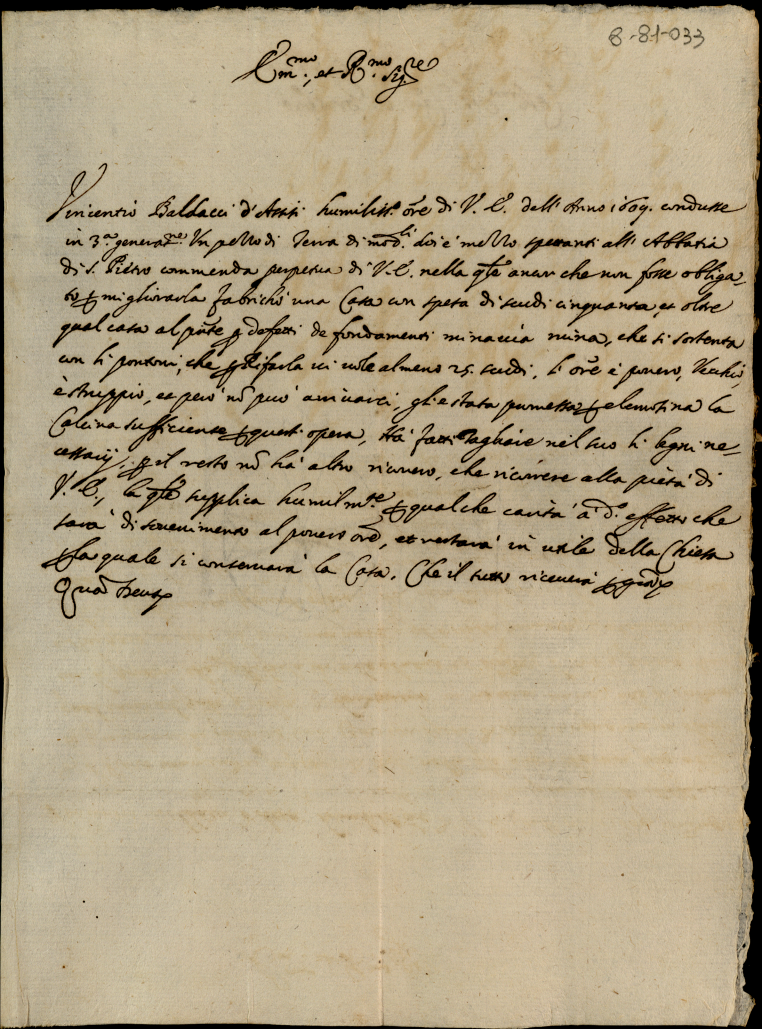 8-81-033
Em.mo et R.mo Sig.re
Vincentio Baldacci d'Assisi humiliss.o ore di V. E. dell'Anno 1609. condusse
in 3.a genera.ne Un pezzo di Terra di mod.li doi è mezzo spettanti all'Abbatia
di S. Pietro commenda perpetua di V. E. nella qle ancor che non fosse obliga-
to p migliorarla fabrichò una Casa con spesa di scudi cinquanta, et oltre
qual casa al pñte p defetti de fondamenti minaccia ruina, che si sostenta
con li pontoni, che p Rifarla ci vole almeno 25. scudi, l'ore è povero, Vecchio,
è struppio, et però nõ può arrivarci, gl'è stata promessa p elemosina la
Calcina sufficiente p quest'opera, Ha fatti Tagliare nel suo li legni ne-
cessarij, p il resto nõ ha altro ricorso, che ricorrere alla pietà di
V. E., la qle supplica humilm.te p qualche carità à d.o effetto che
sarà di sovenimento al povero ore, et restarà in utile della Chiesa
p la quale si conservarà la Casa. Che il tutto riceverà p grã
Quã Deus